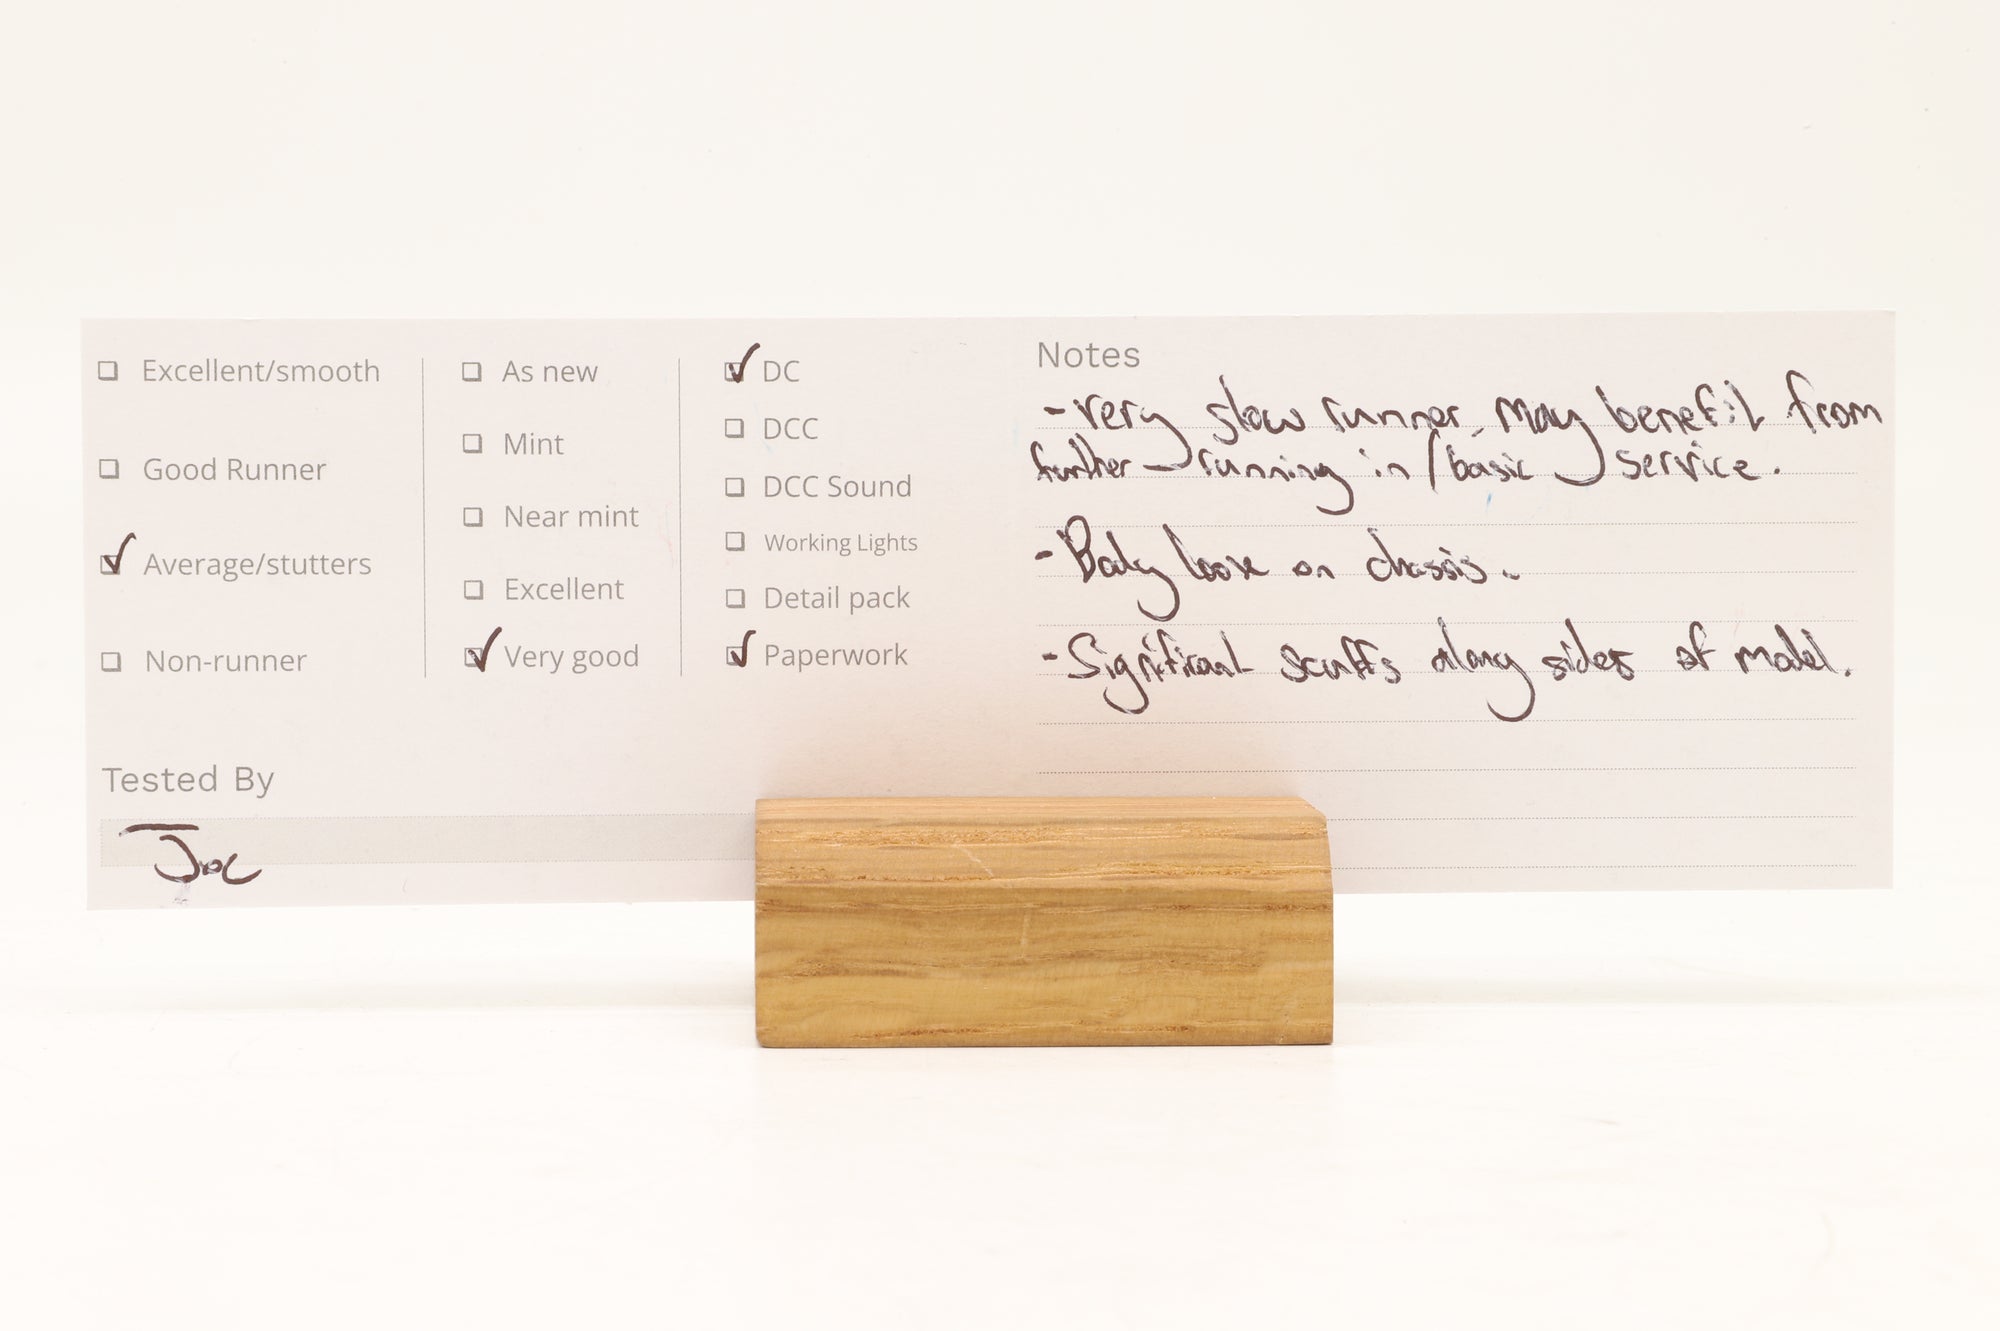 Excellent/smooth
Good Runner
Average/stutters
Non-runner
As new
Mint
Near mint
Excellent
Very good
DC
DCC
DCC Sound
Working Lights
Detail pack
Paperwork
Tested By
Joe
Notes
-very slow runner, may benefit from
further running in/basic service.
-Body loose on chassis.
-Significant scuffs along sides of model.